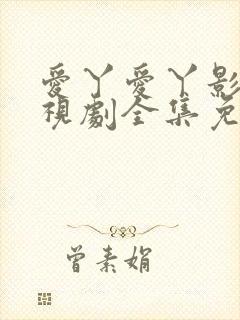 愛丫愛丫影
視劇全集免
曾素娟